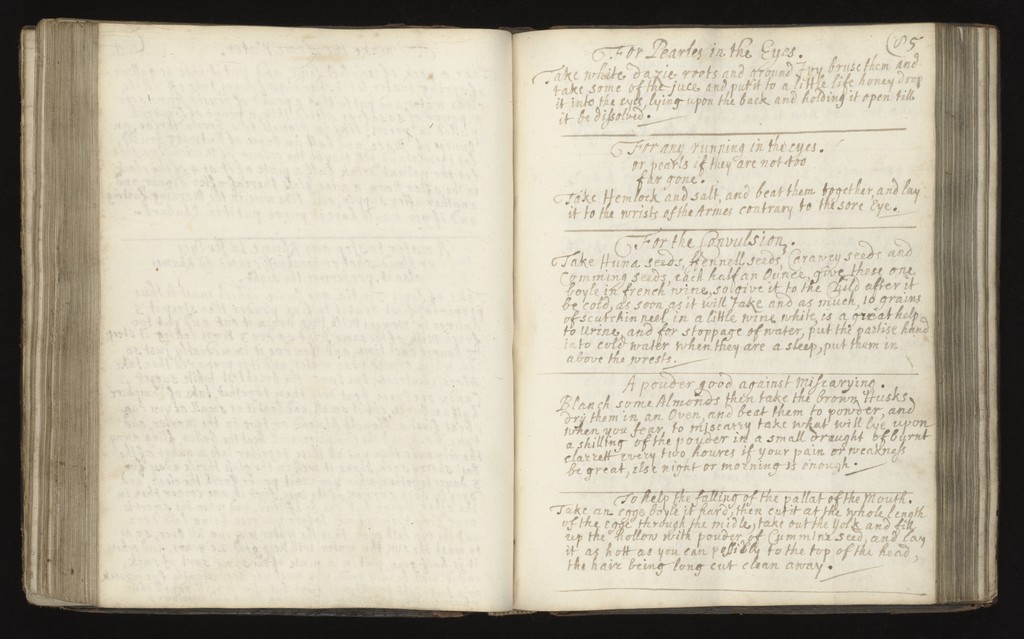 (85
For Pearles in the Eyes.
Take white dazie roots and ground Ivy bruse them and
take some of the juce and put it to a little life honey drop
it into the eyes, lying upon the back and holding it open till
it be dissolved.
For any running in the eyes.
or pearls if they are not too
far gone.
Take Hemlock and salt, and beat them together, and lay
it to the wrists of the Armes contrary to the sore Eye.
For the Convulsion.
Take seeds, Fennell seeds, Carawey seeds and
Comming seeds, each half an Ounce, give these one
boyle in french wine, so give it to the Child after it
be cold, as soon as it will Take and as much, 10 grains
of in a little wine white, is a great help
to Urine, and for stoppage of water, put the parties hand
into cold water when they are a sleep, put them in
above the wrests.
A powder good against Miscarying.
Blanch some Almonds then take the brown Husks
dry them in an Oven, and beat them to powder, and
when you fear, to miscarry take what will lye upon
a shilling of the powder in a small draught of burnt
clarrett every two houres if your pain or weakness
be great, else night or morning is enough.
To help the falling of the pallat of the Mouth.
Take an egge boyle it hard, then cut it at the whole length
of the egge through the midle, take out the yolk and fill
up the hollow with powder of Cummine seed, and lay
it as hott as you can possibly to the top of the head,
the hair being long cut clean away.